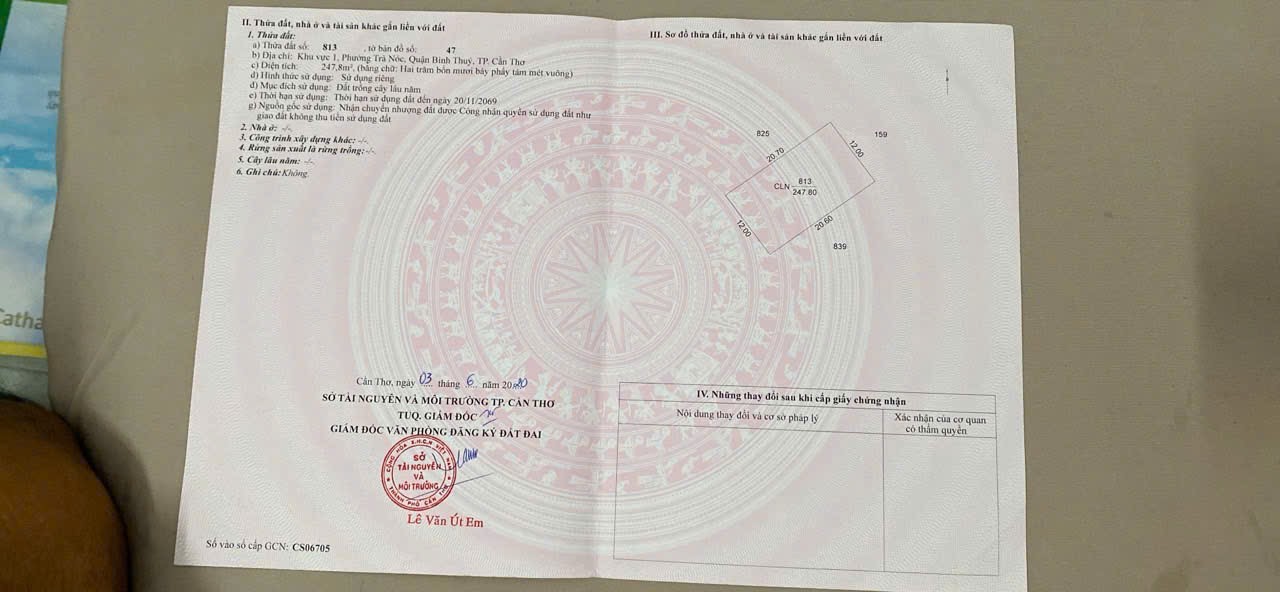 II. Thửa đất, nhà ở và tài sản khác gắn liền với đất
1. Thửa đất:
a) Thửa đất số: 813 , tờ bản đồ số: 47
b) Địa chỉ: Khu vực 1, Phường Trà Nóc, Quận Bình Thuỷ, TP. Cần Thơ
c) Diện tích: 247,8m², (bằng chữ: Hai trăm bốn mươi bảy phẩy tám mét vuông)
d) Hình thức sử dụng: Sử dụng riêng
đ) Mục đích sử dụng: Đất trồng cây lâu năm
e) Thời hạn sử dụng: Thời hạn sử dụng đất đến ngày 20/11/2069
g) Nguồn gốc sử dụng: Nhận chuyển nhượng đất được Công nhận quyền sử dụng đất như
giao đất không thu tiền sử dụng đất
2. Nhà ở: -/-.
3. Công trình xây dựng khác: -/-.
4. Rừng sản xuất là rừng trồng: -/-.
5. Cây lâu năm: -/-.
6. Ghi chú: Không.
Cần Thơ, ngày 03 tháng 6 năm 2020
SỞ TÀI NGUYÊN VÀ MÔI TRƯỜNG TP. CẦN THƠ
TUQ. GIÁM ĐỐC
GIÁM ĐỐC VĂN PHÒNG ĐĂNG KÝ ĐẤT ĐAI
CỘNG HÒA X.H.C.N VIỆT NAM
SỞ
TÀI NGUYÊN
VÀ
MÔI TRƯỜNG
THÀNH PHỐ CẦN THƠ
Lê Văn Út Em
Số vào sổ cấp GCN: CS06705
III. Sơ đồ thửa đất, nhà ở và tài sản khác gắn liền với đất
825
159
20.70
12.00
CLN 813
247.80
12.00
20.60
839
IV. Những thay đổi sau khi cấp giấy chứng nhận
Nội dung thay đổi và cơ sở pháp lý
Xác nhận của cơ quan
có thẩm quyền
Catha